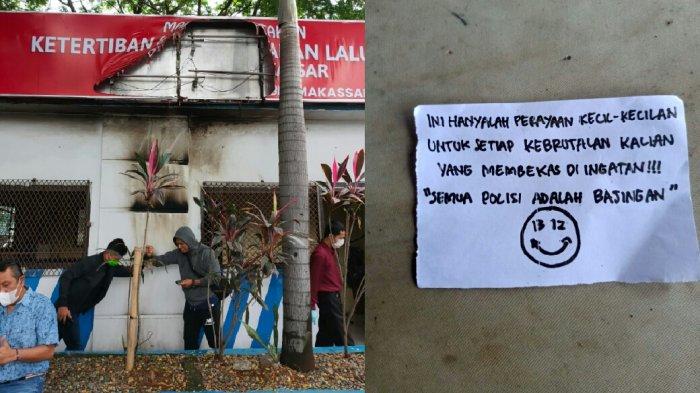 KETERTIBAN
AN LALU
SAR
MAKASSAR
INI HANYALAH PERAYAAN KECIL-KECILAN
UNTUK SETIAP KEBRUTALAN KALIAN
YANG MEMBEKAS DI INGATAN!!!
"SEMUA POLISI ADALAH BAJINGAN"
13 12